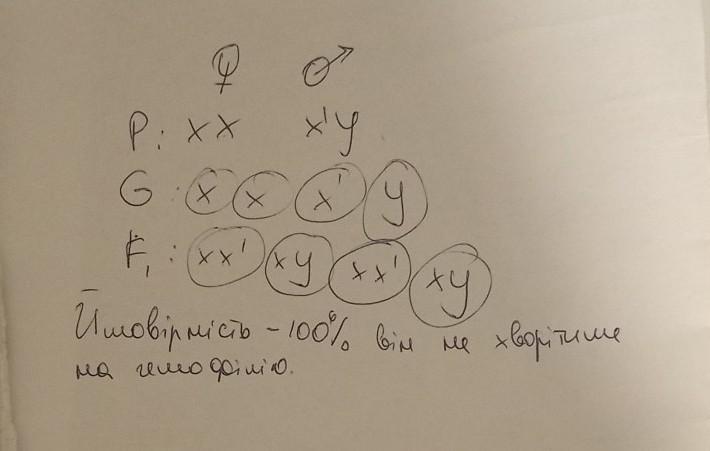 ♀ ♂
P: xx x'y
G: x x x' y
F₁: xx' xy xx' xy
Ймовірність - 100% він не хворітиме
на гемофілію.